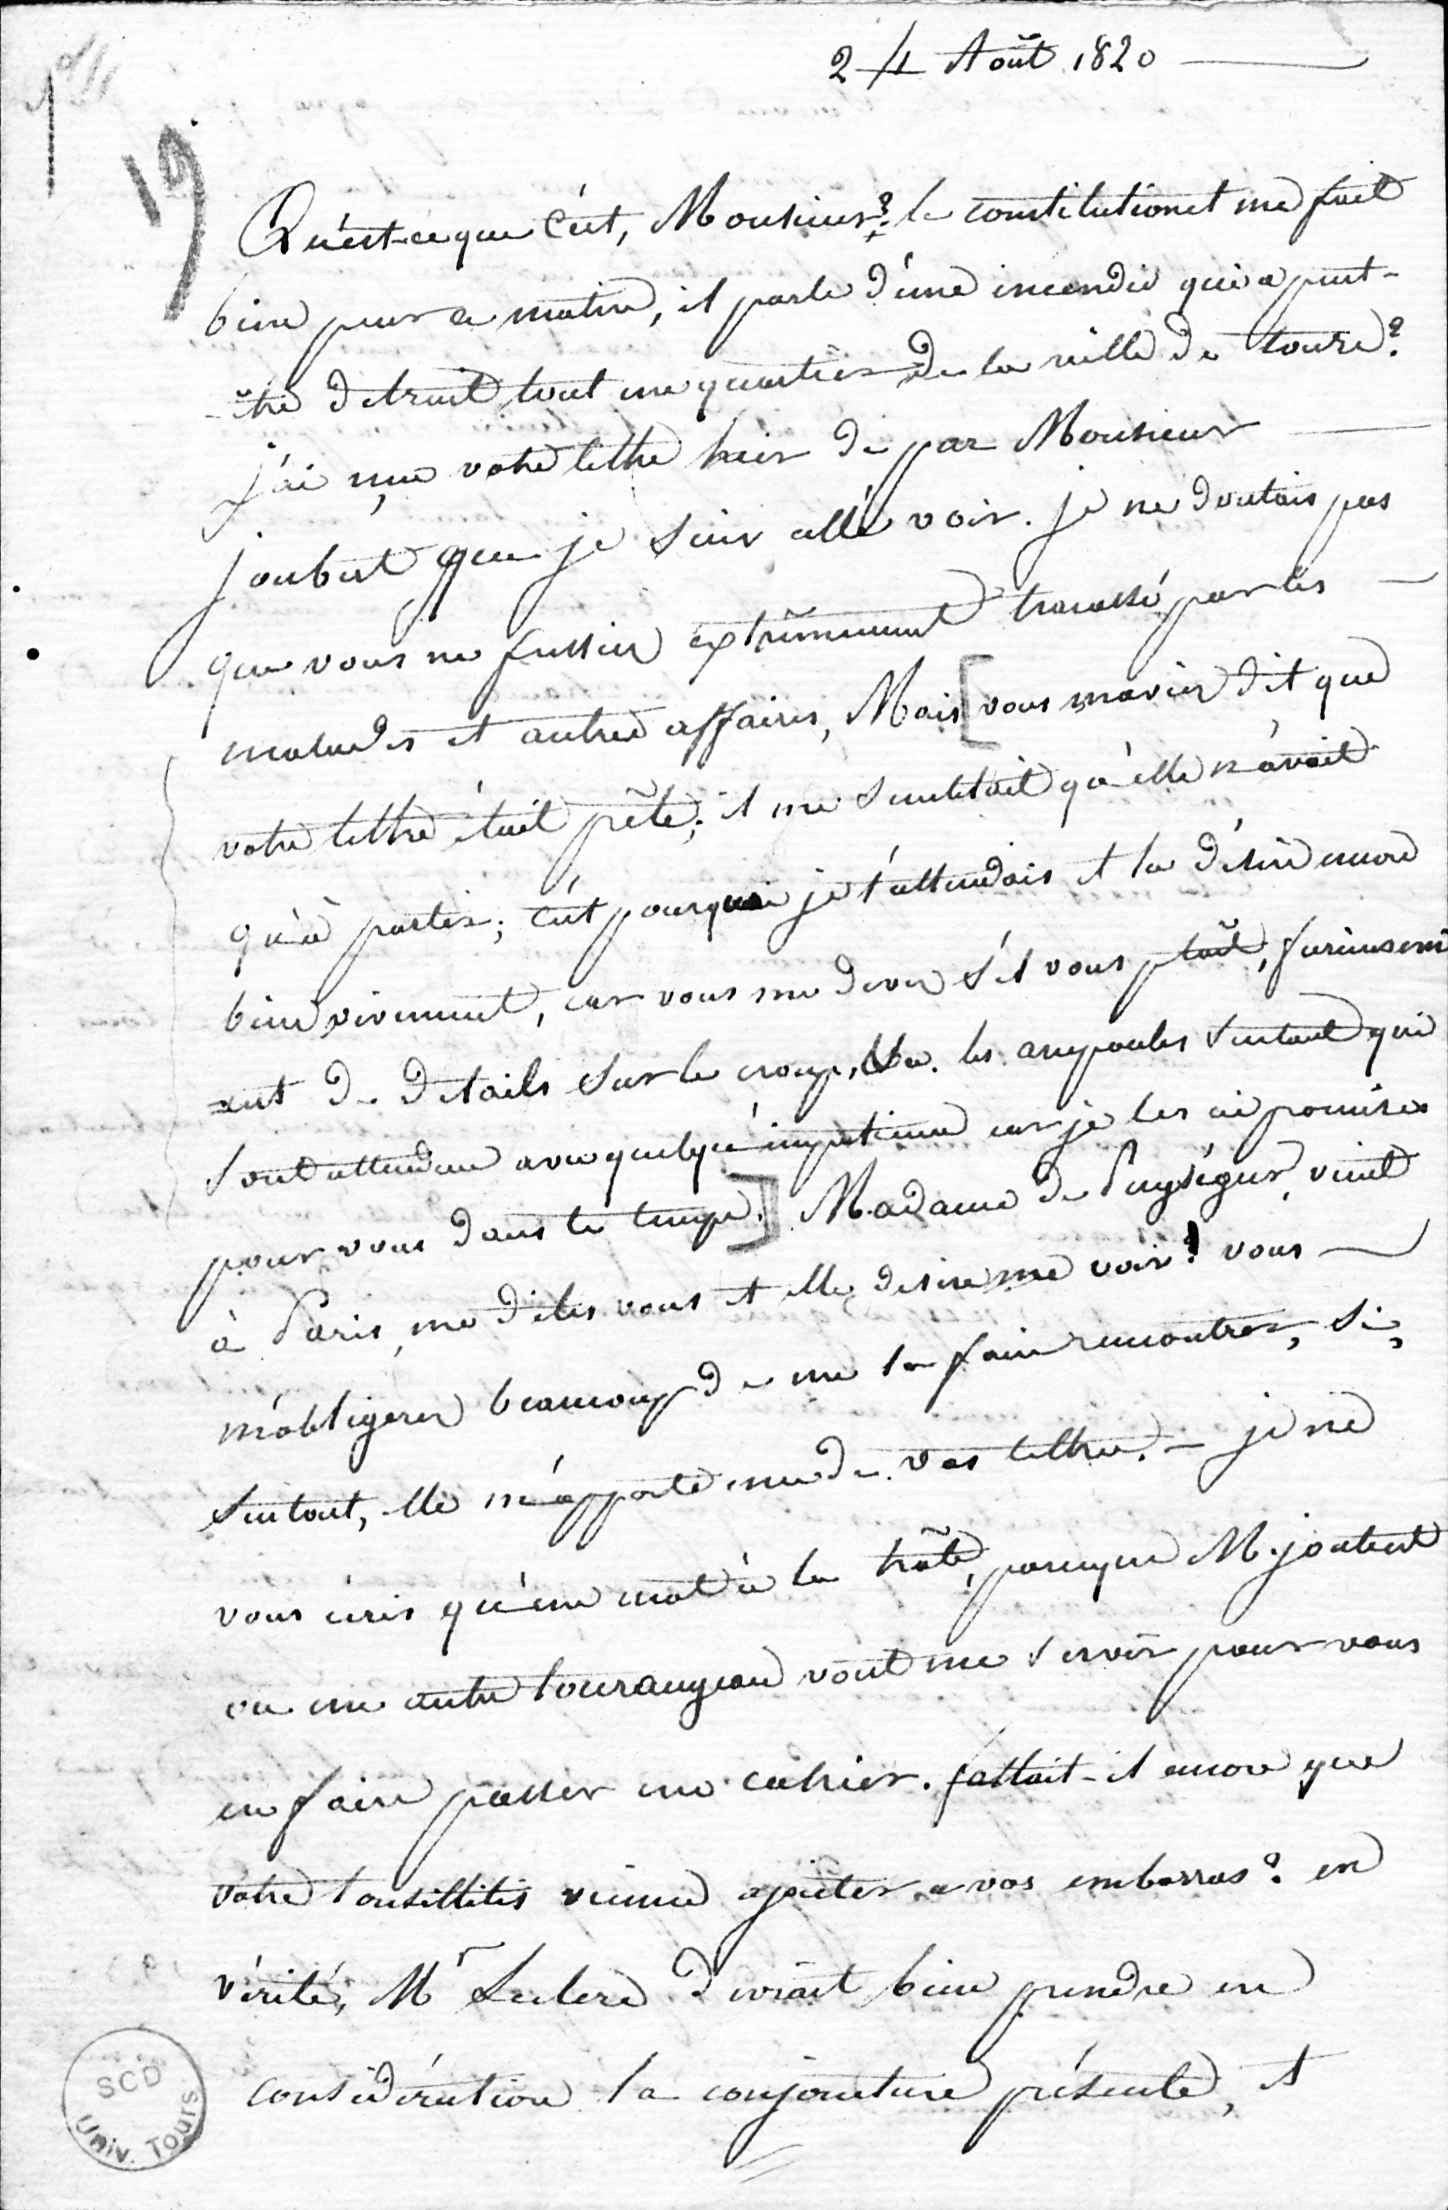 24 Août 1820
19
Qu'est-ce que c'est, Monsieur? le constitutionel me fait
bien peur ce matin, il parle d'une incendie qui a peut-
-être detruit tout un quartier de la ville de tours?
j'ai reçu votre lettre hier de par Monsieur
joubert que je suis allé voir. je ne doutais pas
que vous ne fussiez extrêmement tracassé par les
malades et autres affaires, Mais [vous m'aviez dit que
votre lettre était prête; il me semblait qu'elle n'avait
qu'à partir; c'est pourquoi je l'attendais et la désire encore
bien vivement, car vous me devez s'il vous plaît, furieusem
ent de details sur le croup, &a. les ampoules surtout qui
sont attendues avec quelqu'impatience car je les ai promises
pour vous dans le temps.] Madame de Puységur vient
à Paris, me dites vous et elle desire me voir! vous
m'obligerez beaucoup de me la faire rencontrer, si,
surtout, elle m'apporte une de vos lettres. – je ne
vous écris qu'un mot à la hâte, parceque M. joubert
ou un autre tourangeau vont me servir pour vous
en faire passer un cahier. fallait-il encore que
votre tonsillitis vienne ajouter a vos embarras? en
vérité, Mr Leclerc devrait bien prendre en
considération la conjoncture présente, et
SCD
Univ. Tours